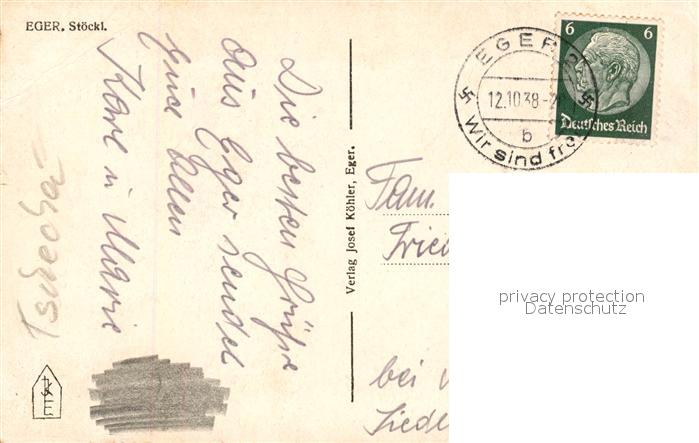 EGER. Stöckl.
Die besten Grüße
aus Eger sendet
Karl u Marie
Tschecha-
Verlag Josef Köhler, Eger.
EGER
12.10.38-
b
Wir sind fre
6 6
Deutsches Reich
Fam.
Fried
bei
Siede
privacy protection
Datenschutz